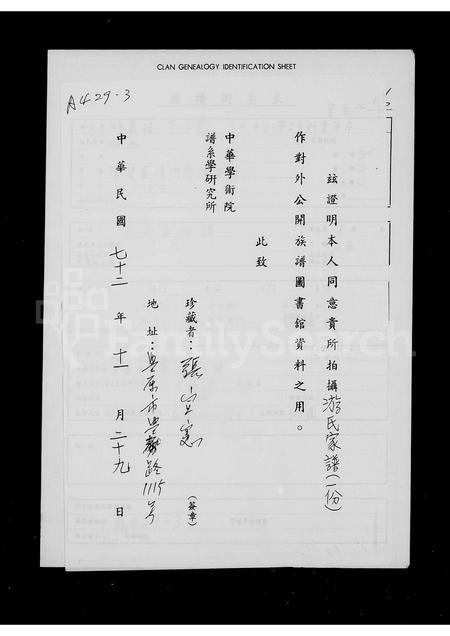 CLAN GENEALOGY IDENTIFICATION SHEET
A429-3
茲證明本人同意貴所拍攝游氏家譜(一份)
作對外公開族譜圖書館資料之用。
此致
中華學術院
譜系學研究所
珍藏者：張 憲 (簽章)
地址：豐原市豐 路1115号
中華民國七十二年十一月二十九日
FamilySearch